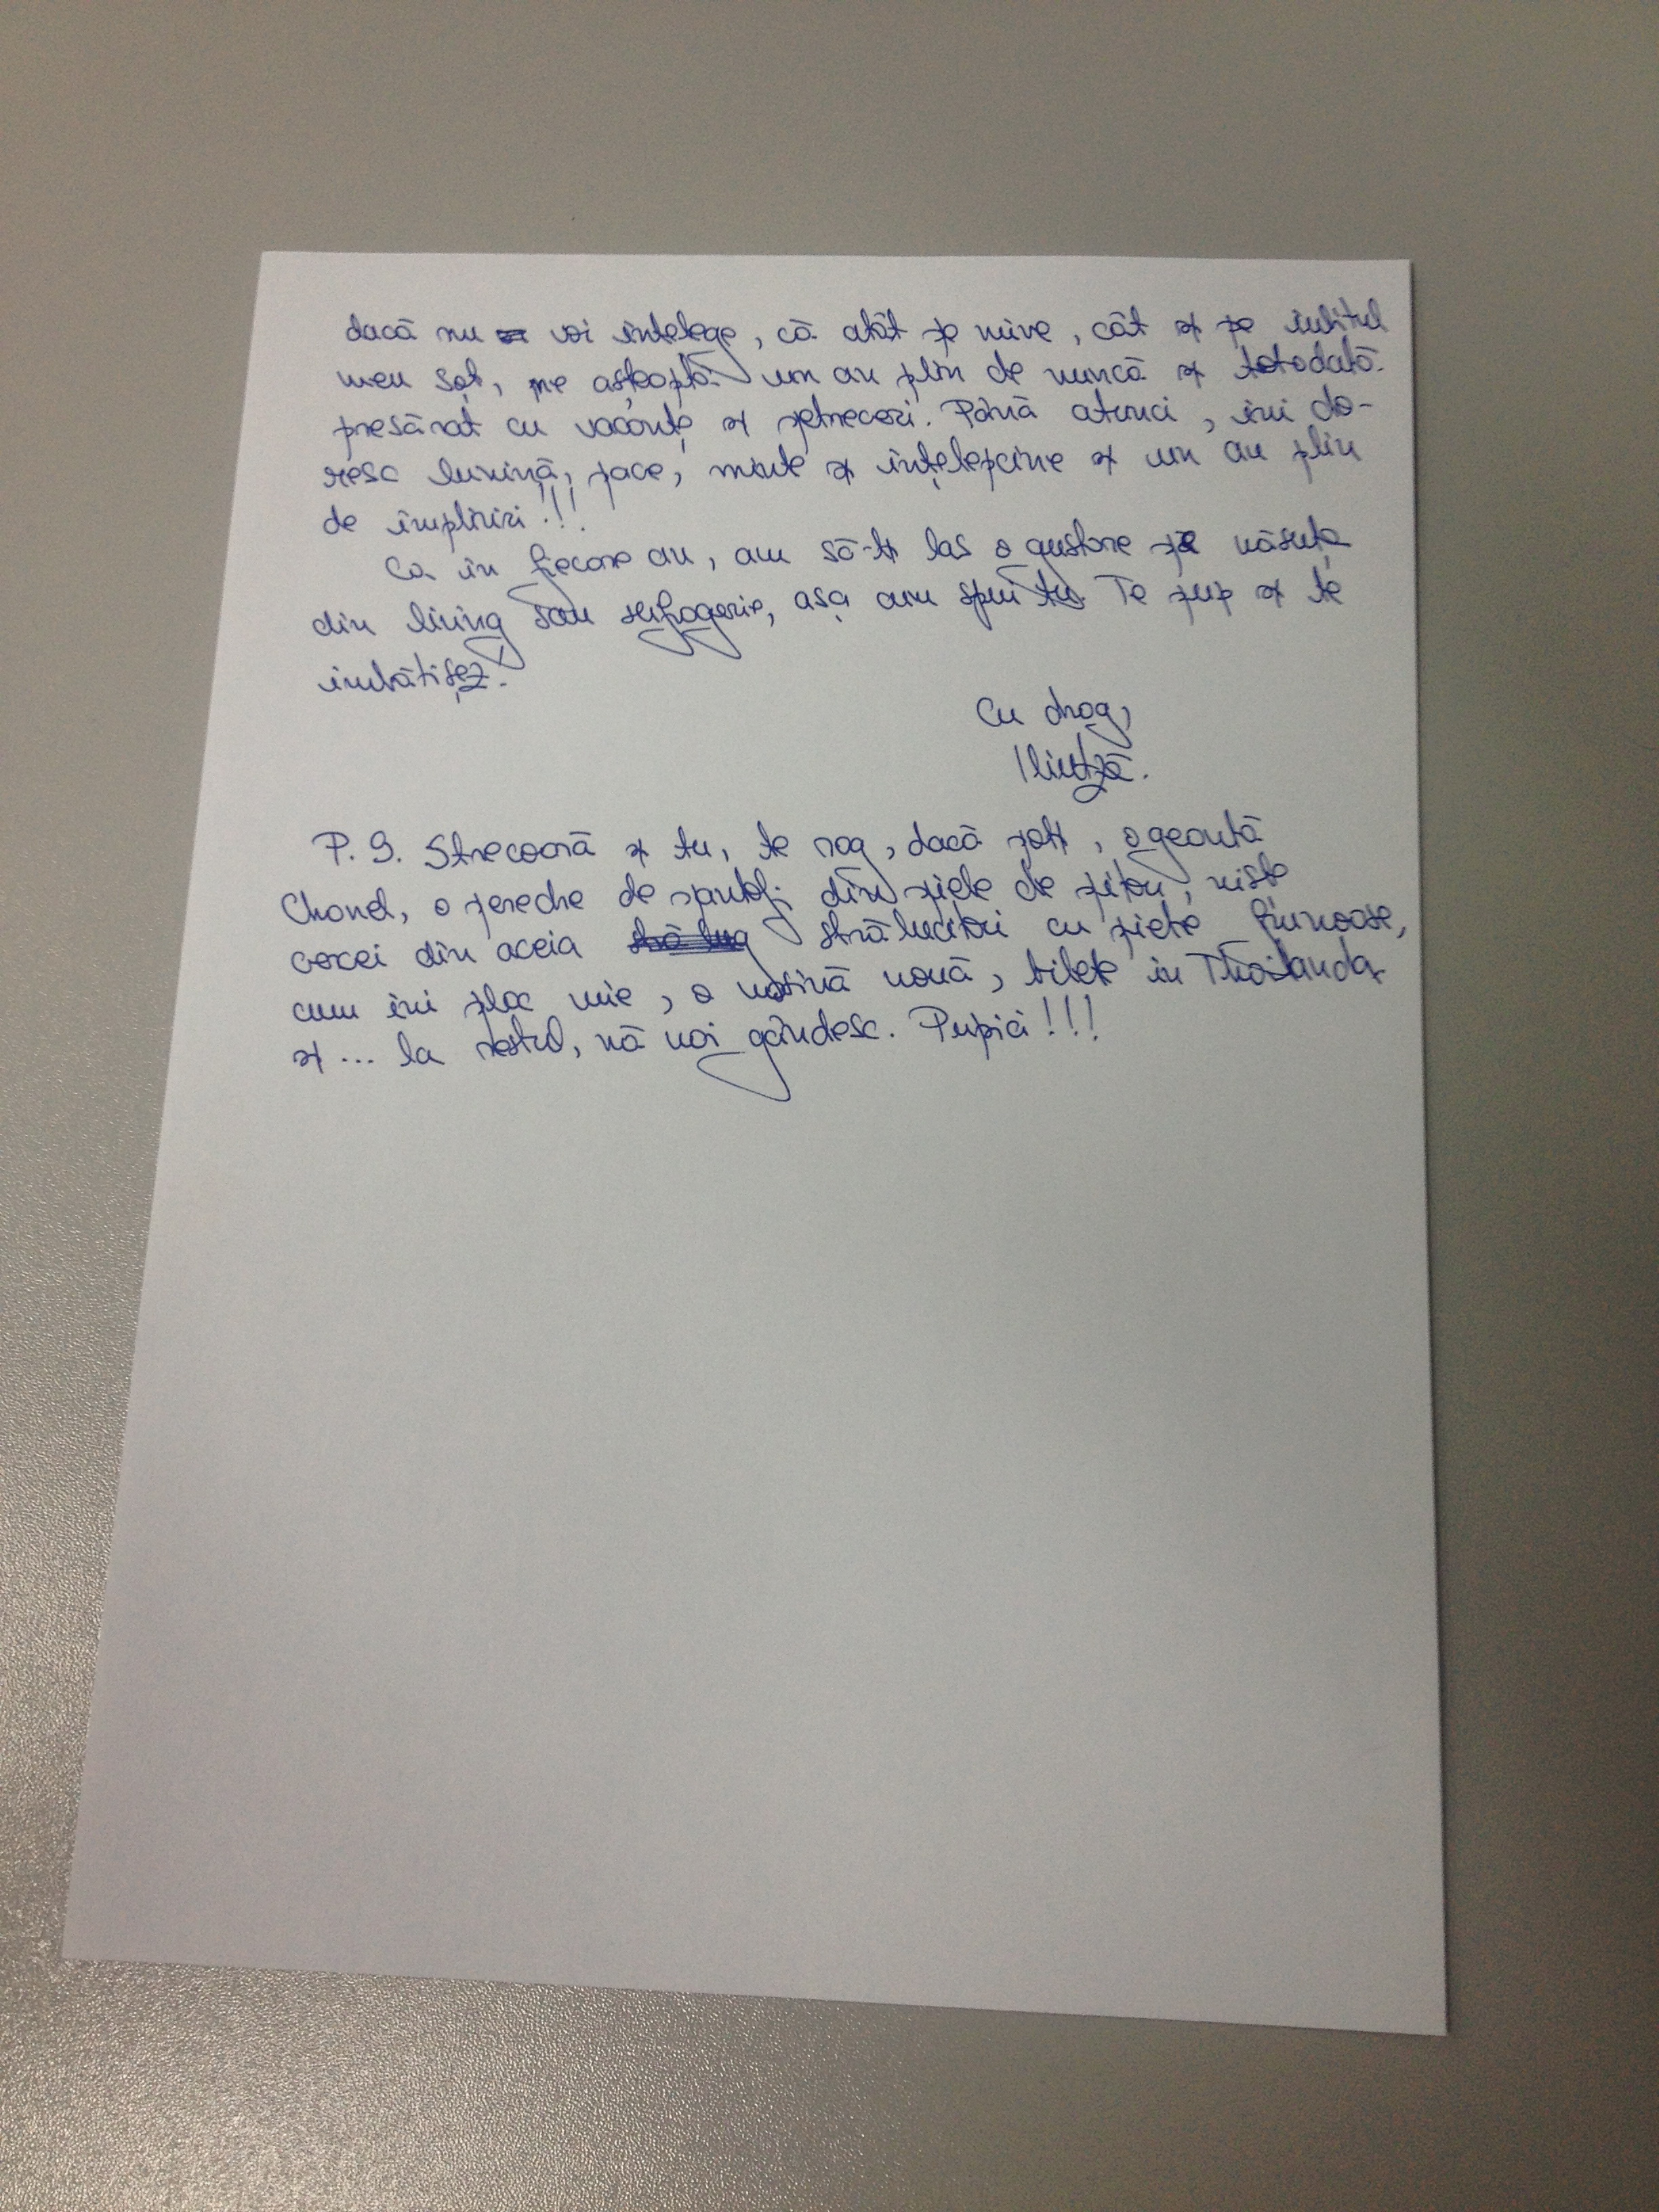 dacă nu voi întelege, că atât pe mine, cât și pe iubitul
meu soț, ne așteaptă un an plin de muncă și totodată
presărat cu vacanțe și petreceri. Până atunci, îmi do-
resc lumină, pace, minte și înțelepcine și un an plin
de împliniri!!!
Ca în fiecare an, am să-ți las o gustare pe măsuța
din living sau sufragerie, așa cum spui tu. Te pup și te
îmbătișez.
Cu drag,
P.S. Strecoară și tu, te rog, dacă poți, o geantă
Chanel, o pereche de pantofi din piele de piton, niste
cercei din aceia strălucitori cu pietre frumoase,
cum îmi plac mie, o mașină nouă, bilete in Thailanda
și ... la restul, mă mai gândesc. Pupici!!!